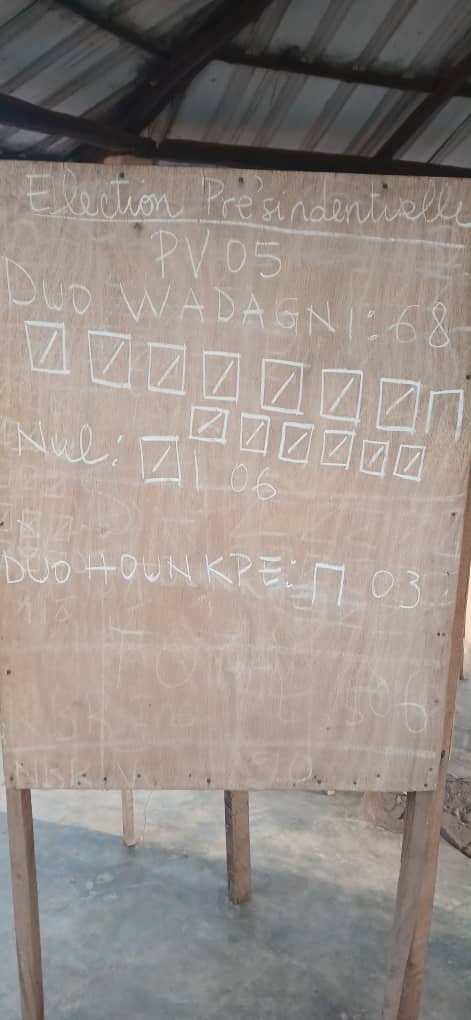 Election Présindentielle
PV 05
DUO WADAGNI : 68
Nul : 06
DUO HOUNKPE : 03